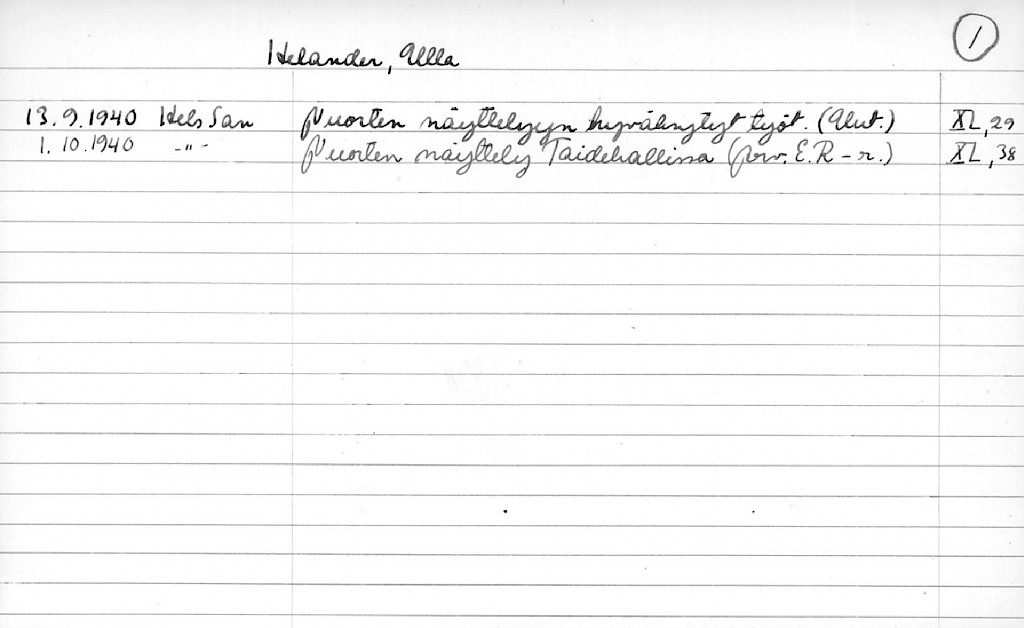 1
Helander, Ulla
13.9.1940 Hels San Nuorten näyttelyyn hyväksytyt työt. (Uut.) XL, 29
1.10.1940 -"- Nuorten näyttely Taidehallissa (arv. E.R-r.) XL, 38